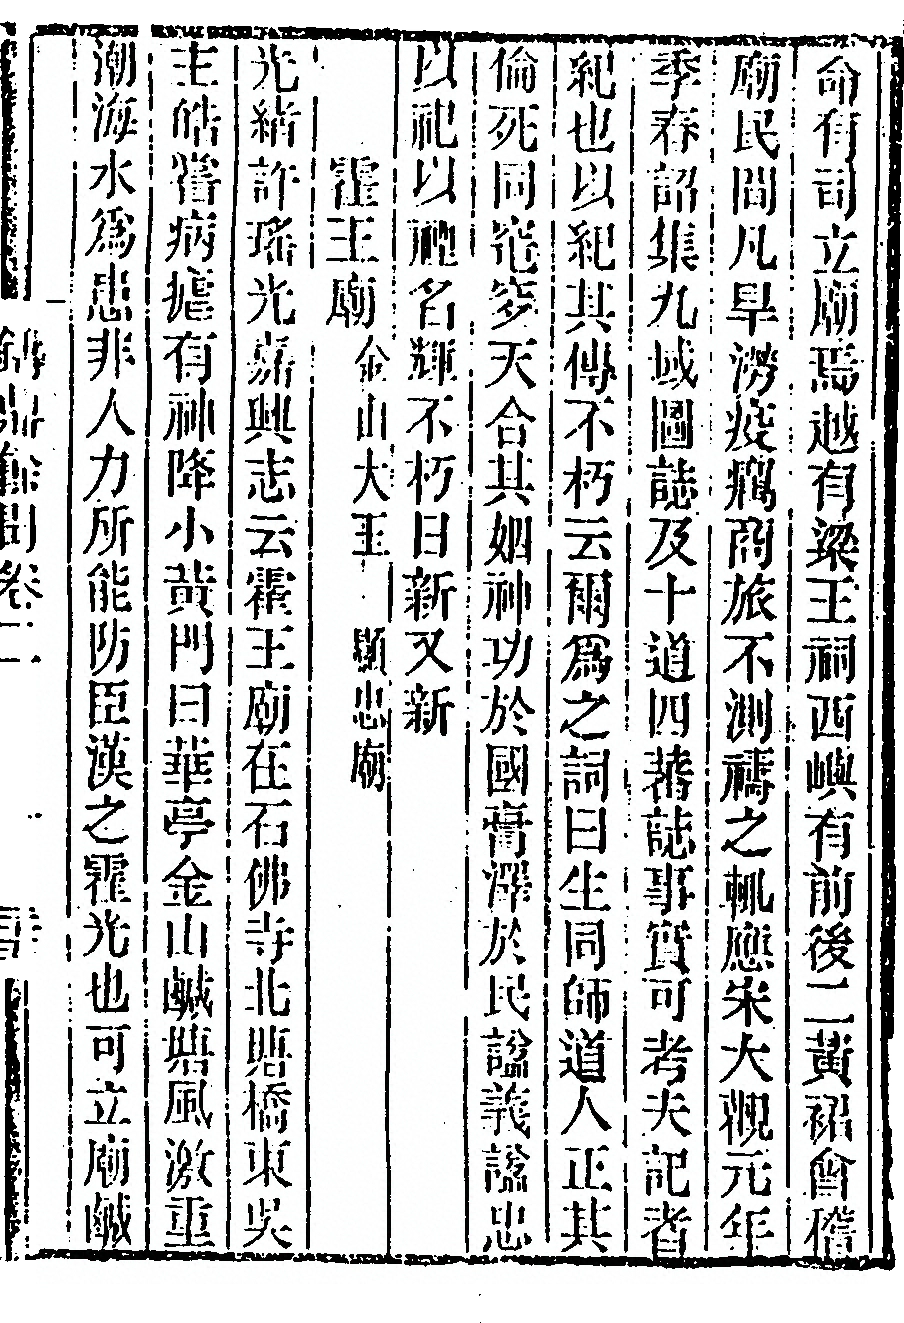 命有司立廟焉越有梁王祠西嶼有前後二黃裙會稽
廟民間凡旱澇疫癘商旅不測禱之輒應宋大觀元年
季春詔集九域圖誌及十道四蕃誌事實可考夫記者
紀也以紀其傳不朽云爾爲之詞曰生同師道人正其
倫死同窀穸天合其姻神功於國膏澤於民諡義諡忠
以祀以禋名輝不朽日新又新
霍王廟 金山大王 顯忠廟
光緒許瑤光嘉興志云霍王廟在石佛寺北塘橋東吳
主皓嘗病瘧有神降小黃門曰華亭金山鹹塘風激重
潮海水爲患非人力所能防臣漢之霍光也可立廟鹹
卷二